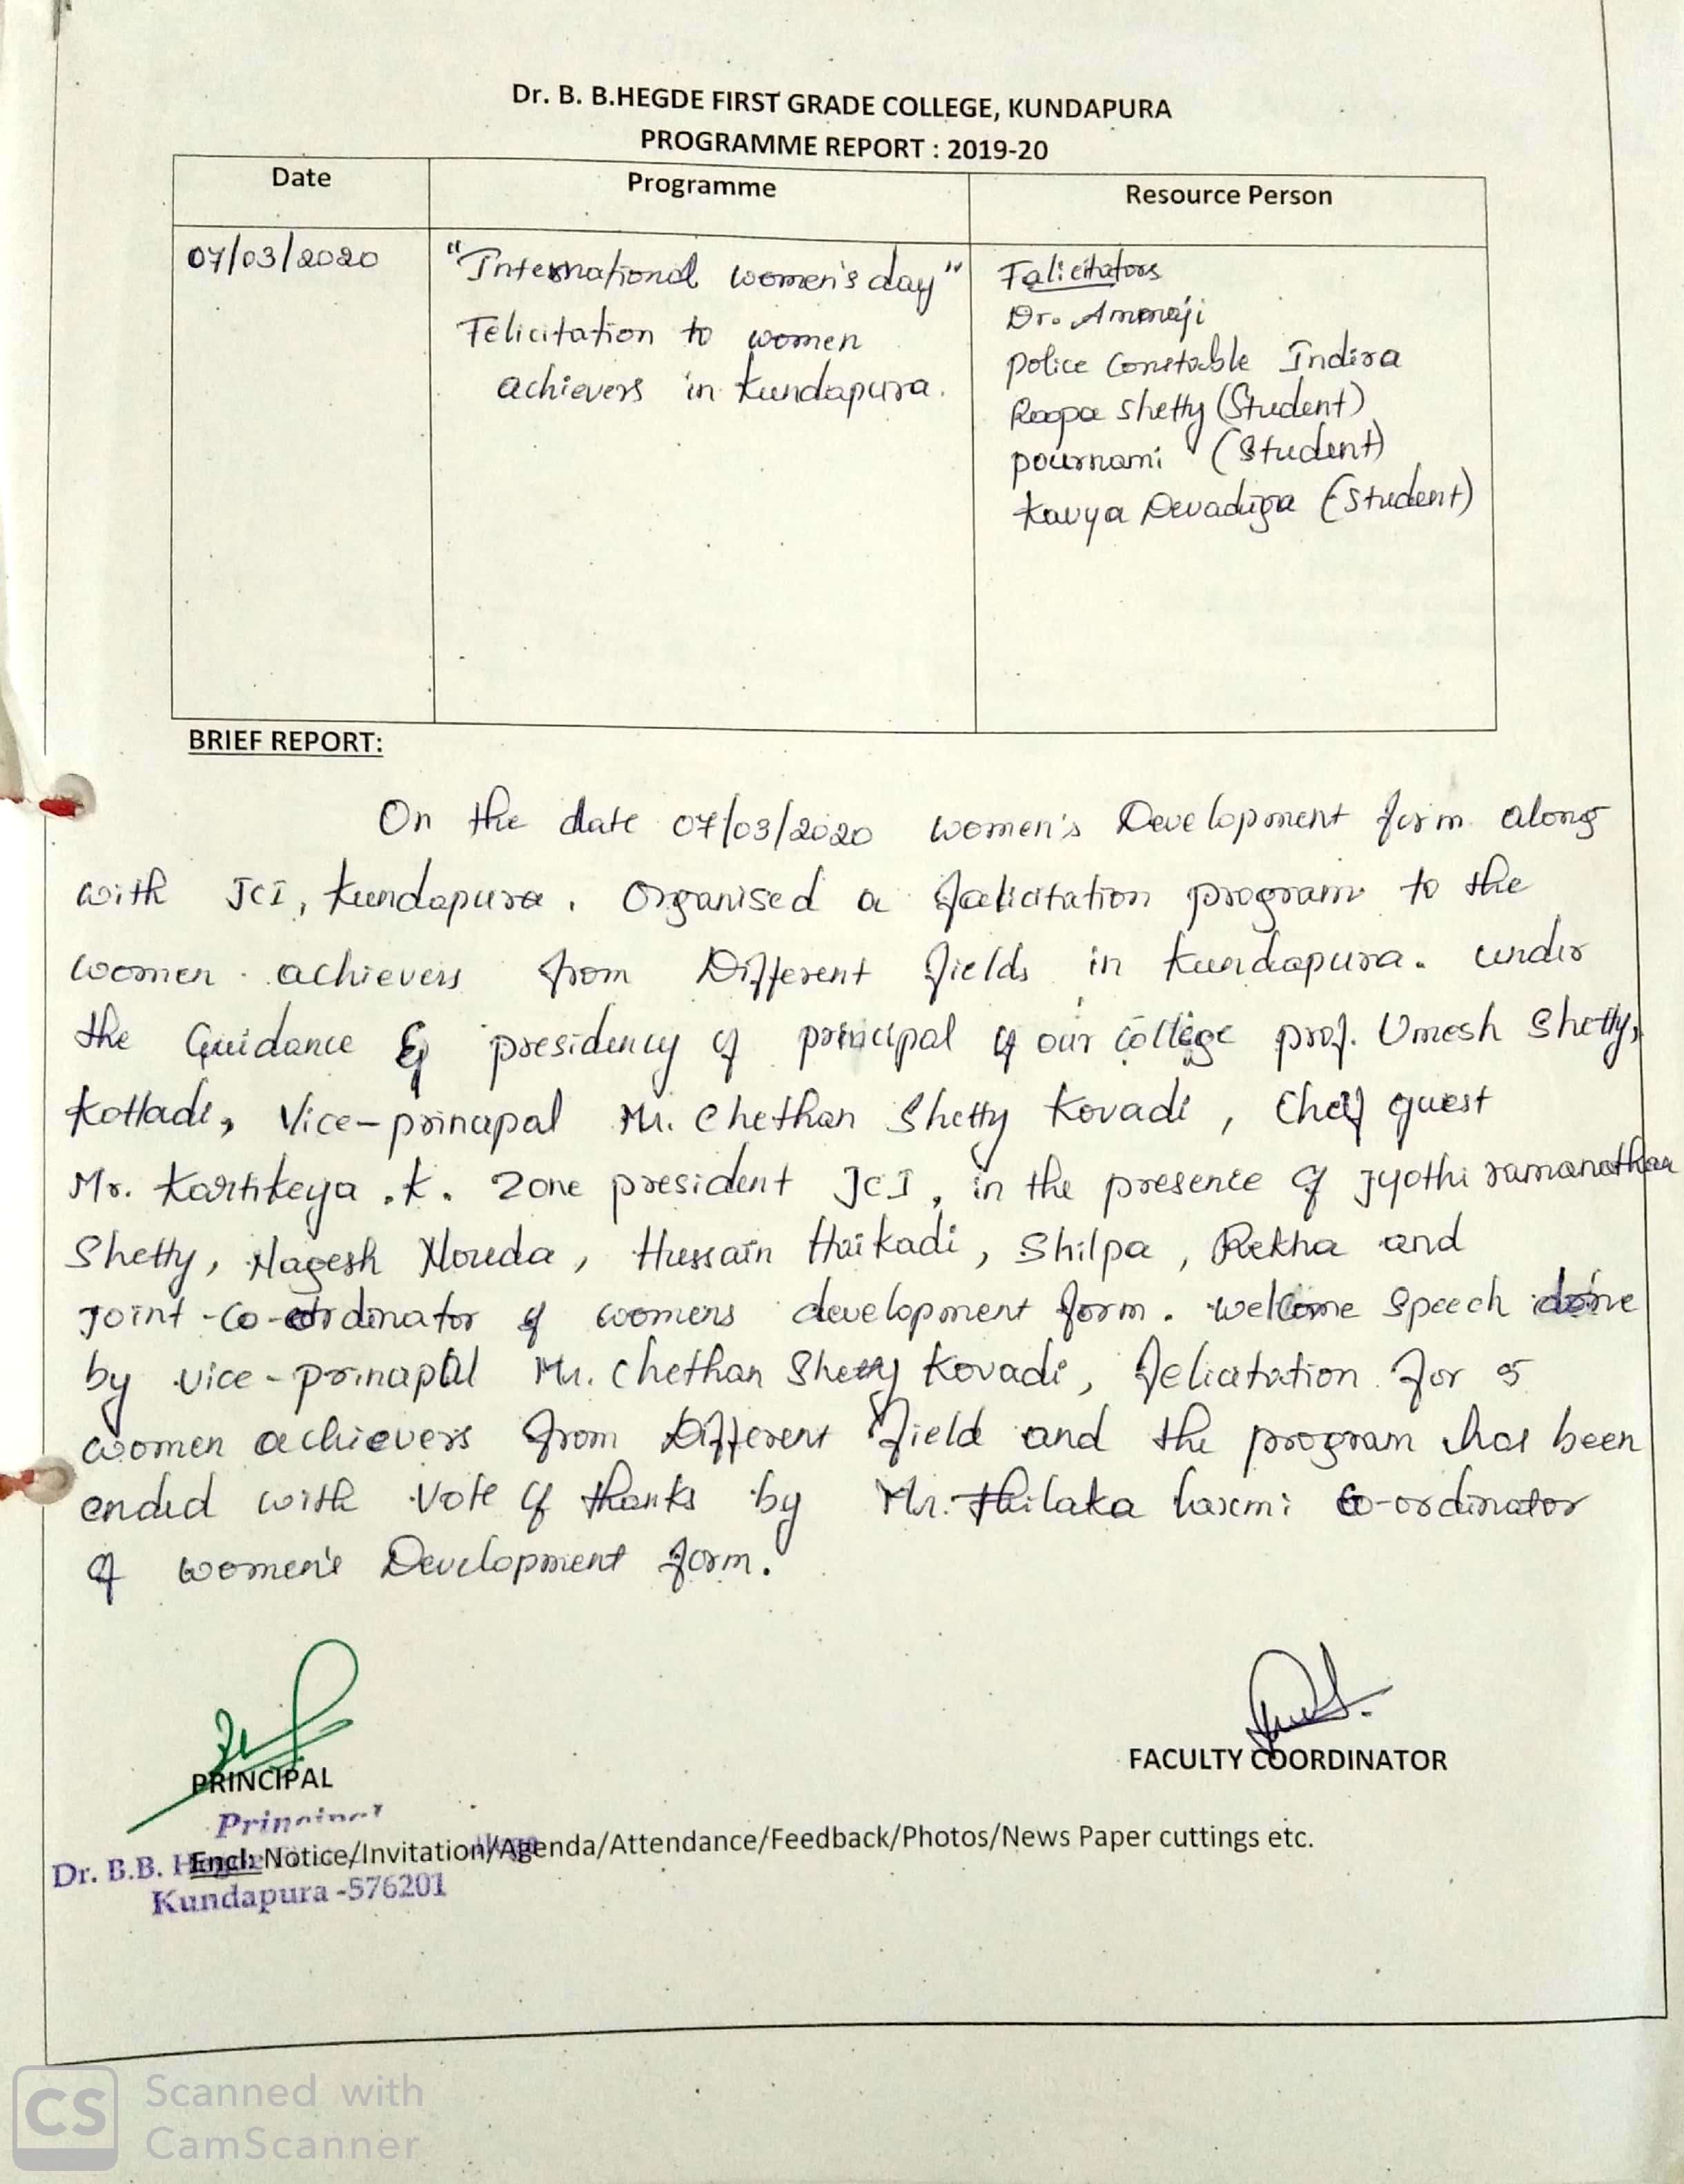 Dr. B. B.HEGDE FIRST GRADE COLLEGE, KUNDAPURA
PROGRAMME REPORT : 2019-20
Date Programme Resource Person
07/03/2020
"International women's day"
Felicitation to women
achievers in Kundapura.
Falicitators
Dr. Ammaji
police Constable Indira
Roopa Shetty (Student)
pournami (Student)
Kavya Devadiga (Student)
BRIEF REPORT:
On the date 07/03/2020 women's Development form along
with JCI, Kundapura. Organised a falicitation program to the
women achievers from Different fields in Kundapura. under
the Guidance & presidency of principal of our college prof. Umesh Shetty,
Kotladi, Vice-principal Mr. Chethan Shetty Kovadi, Cheif guest
Mr. Kartikeya .K. Zone president JCI, in the presence of Jyothi ramanathan
Shetty, Nagesh Nouda, Hussain Haikadi, Shilpa, Rekha and
Joint-co-ordinator of womens development form. welcome Speech done
by vice-principal Mr. Chethan Shetty Kovadi, felicitation for 5
women achievers from Different field and the program has been
ended with Vote of thanks by Mr. Thilaka laxmi Co-ordinator
of women's Development form.
PRINCIPAL
FACULTY COORDINATOR
Principal
Encl: Notice/Invitation/Agenda/Attendance/Feedback/Photos/News Paper cuttings etc.
Dr. B.B. Hegde
Kundapura -576201
CS Scanned with
CamScanner